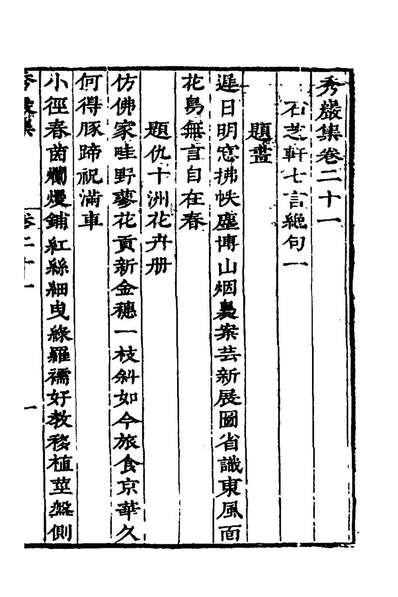 秀巖集卷二十一
石芝軒七言絕句一
題畫
遲日明窓拂帙塵博山烟裊案芸新展圖省識東風面
花鳥無言自在春
題仇十洲花卉册
仿佛家畦野蓼花貢新金穗一枝斜如今旅食京華久
何得豚蹄祝滿車
小徑春茵爛熳鋪紅絲細曳綠羅襦好教移植莖盤側
卷二十一
一